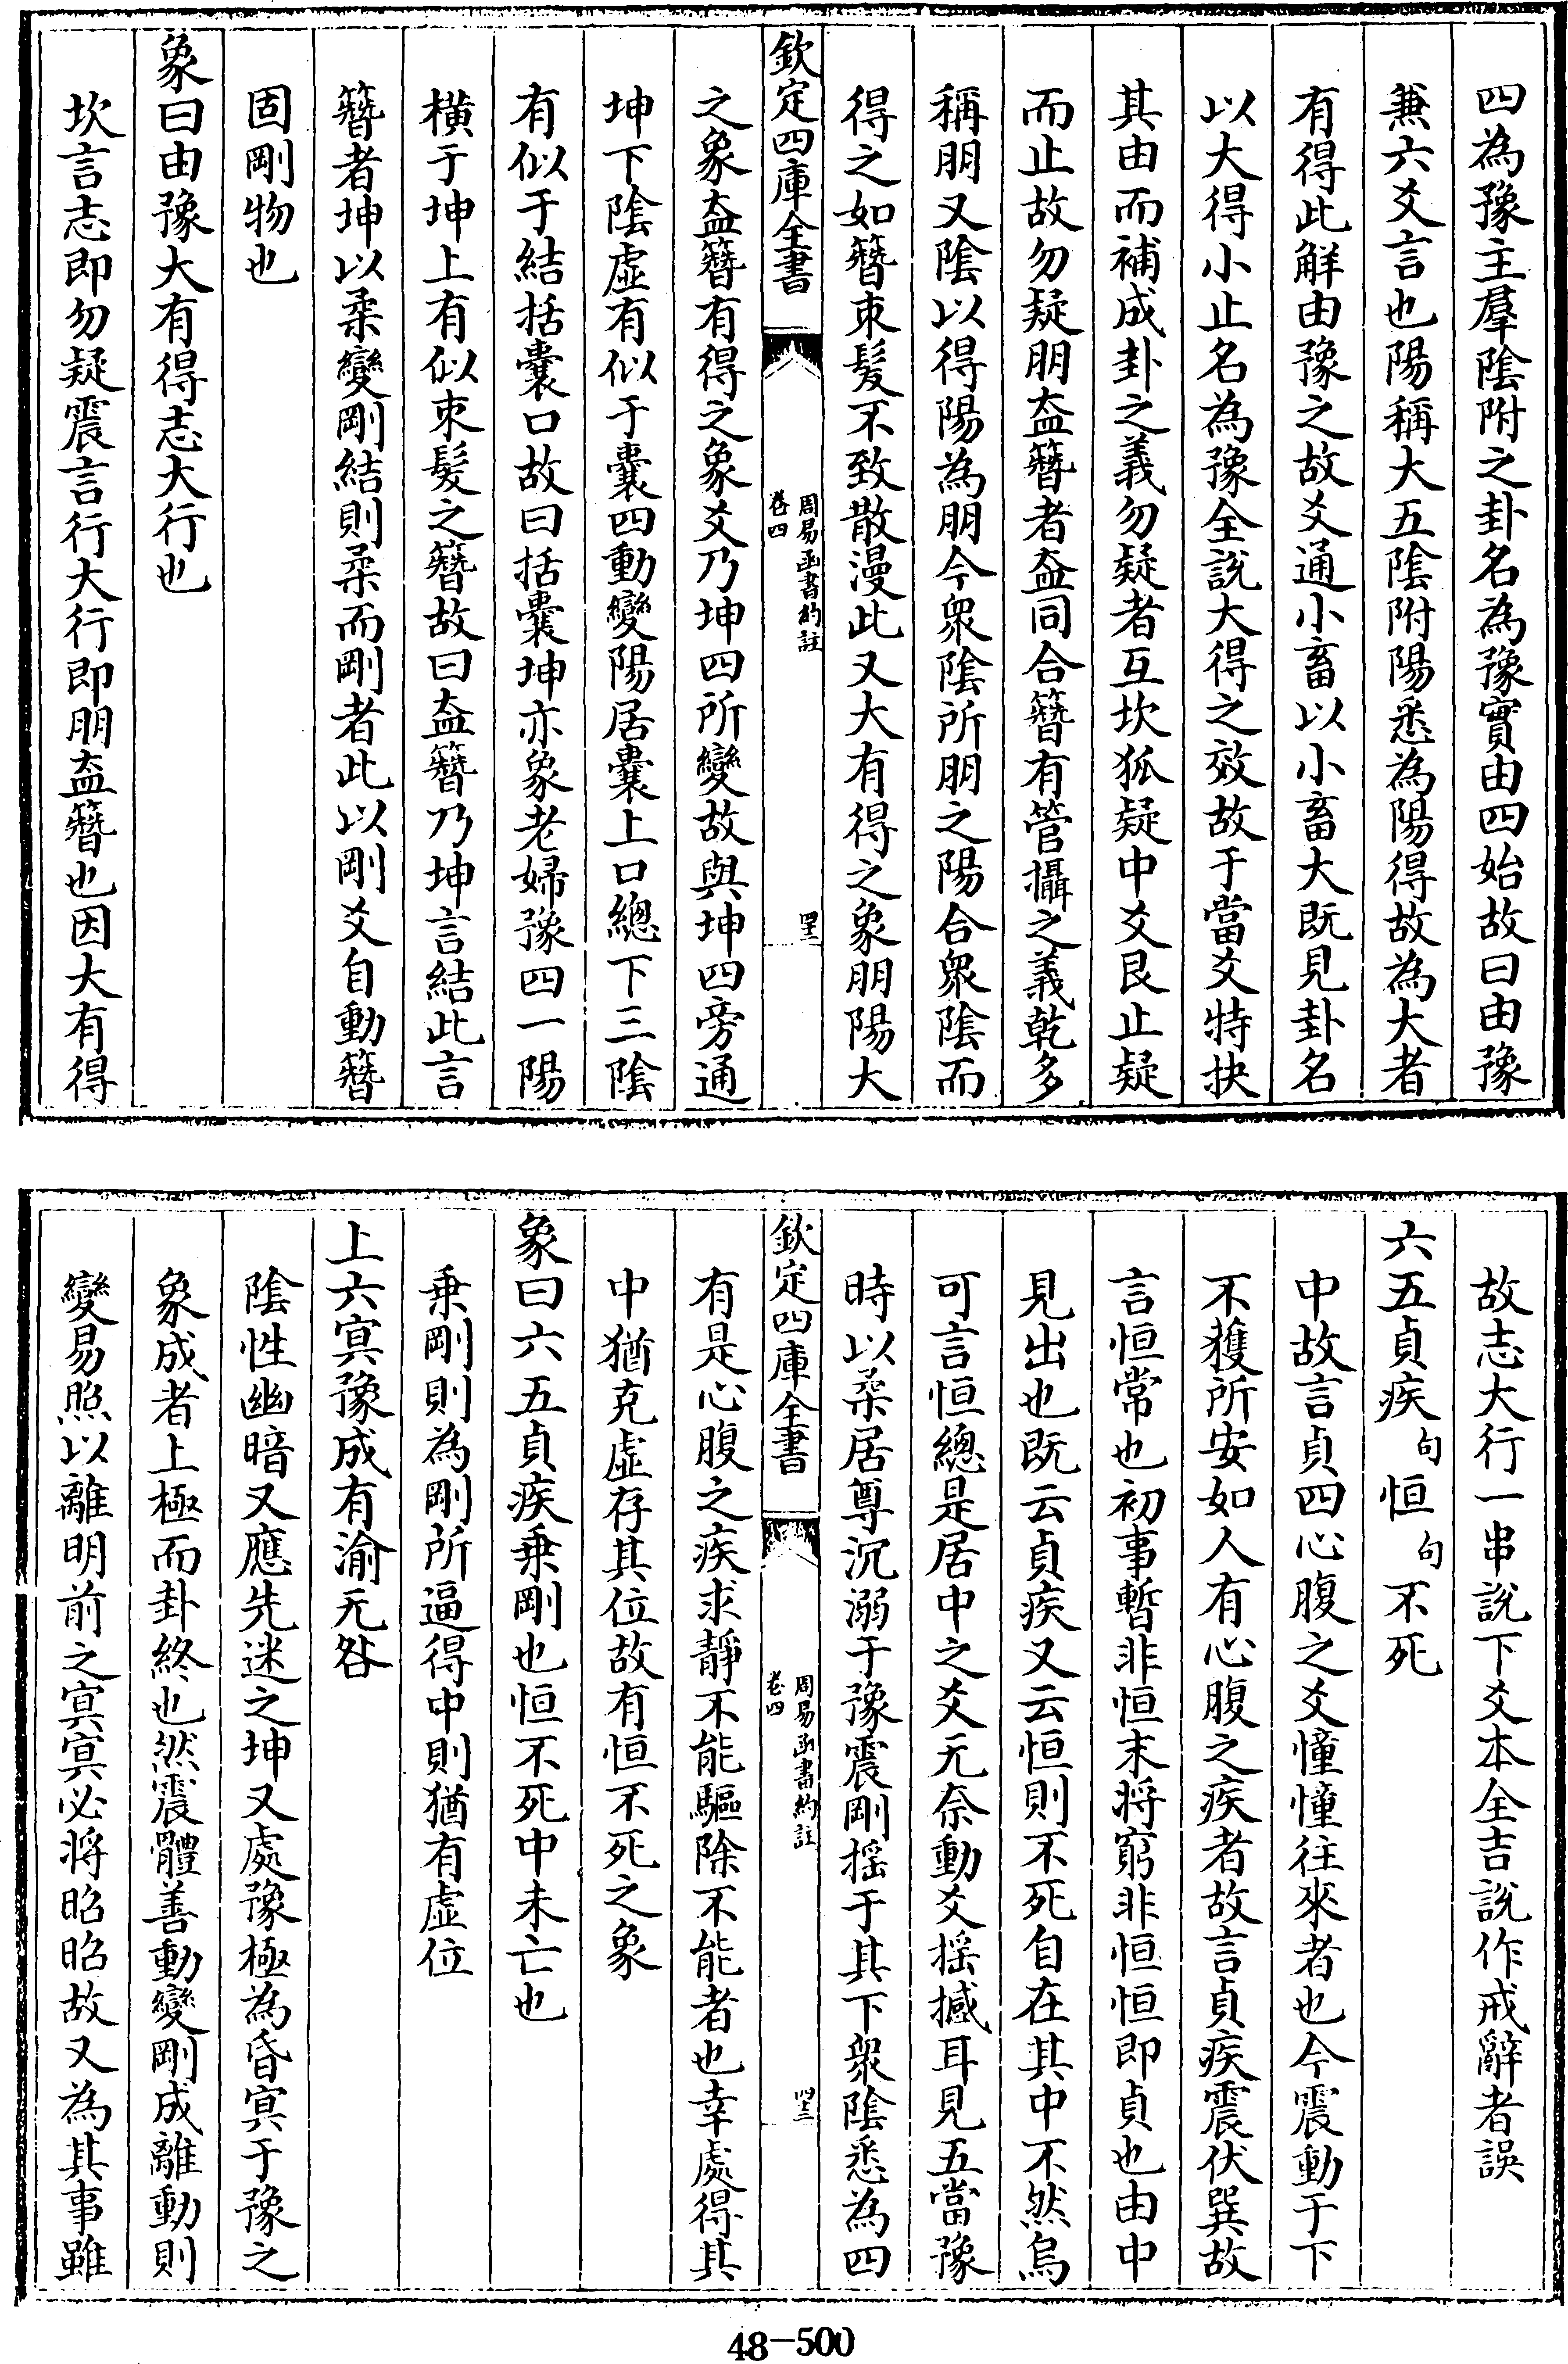 四為豫主羣陰附之卦名為豫實由四始故曰由豫
兼六爻言也陽稱大五陰附陽悉為陽得故為大者
有得此解由豫之故爻通小畜以小畜大既見卦名
以大得小止名為豫全說大得之效故于當爻特抉
其由而補成卦之義勿疑者互坎狐疑中爻艮止疑
而止故勿疑朋盍簪者盍同合簪有管攝之義乾多
稱朋又陰以得陽為朋今衆陰所朋之陽合衆陰而
得之如簪束髮不致散漫此又大有得之象朋陽大
欽定四庫全書
周易函書約註
卷四
四十三
之象盍簪有得之象爻乃坤四所變故與坤四旁通
坤下陰虛有似于囊四動變陽居囊上口總下三陰
有似于結括囊口故曰括囊坤亦象老婦豫四一陽
橫于坤上有似束髮之簪故曰盍簪乃坤言結此言
簪者坤以柔變剛結則柔而剛者此以剛爻自動簪
固剛物也
象曰由豫大有得志大行也
坎言志即勿疑震言行大行即朋盍簪也因大有得
故志大行一串說下爻本全吉說作戒辭者誤
六五貞疾句恒句不死
中故言貞四心腹之爻憧憧往來者也今震動于下
不獲所安如人有心腹之疾者故言貞疾震伏巽故
言恒常也初事暫非恒末將窮非恒恒即貞也由中
見出也既云貞疾又云恒則不死自在其中不然烏
可言恒總是居中之爻无奈動爻揺撼耳見五當豫
時以柔居尊沉溺于豫震剛揺于其下衆陰悉為四
欽定四庫全書
周易函書約註
卷四
四十三
有是心腹之疾求靜不能驅除不能者也幸處得其
中猶克虛存其位故有恒不死之象
象曰六五貞疾乗剛也恒不死中未亡也
乗剛則為剛所逼得中則猶有虛位
上六冥豫成有渝无咎
陰性幽暗又應先迷之坤又處豫極為昏冥于豫之
象成者上極而卦終也然震體善動變剛成離動則
變易照以離明前之冥冥必將昭昭故又為其事雖
48-500